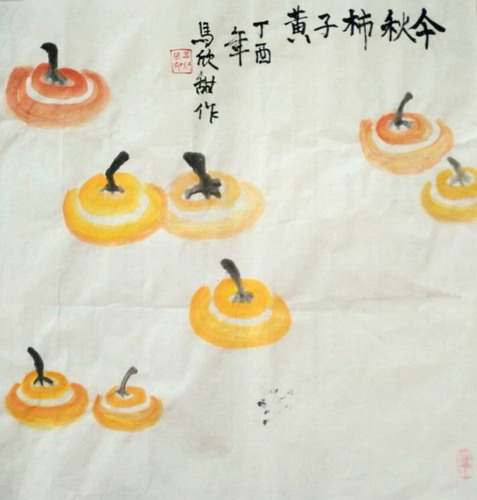 今秋柿子黄
丁酉
年
馬欣甜作